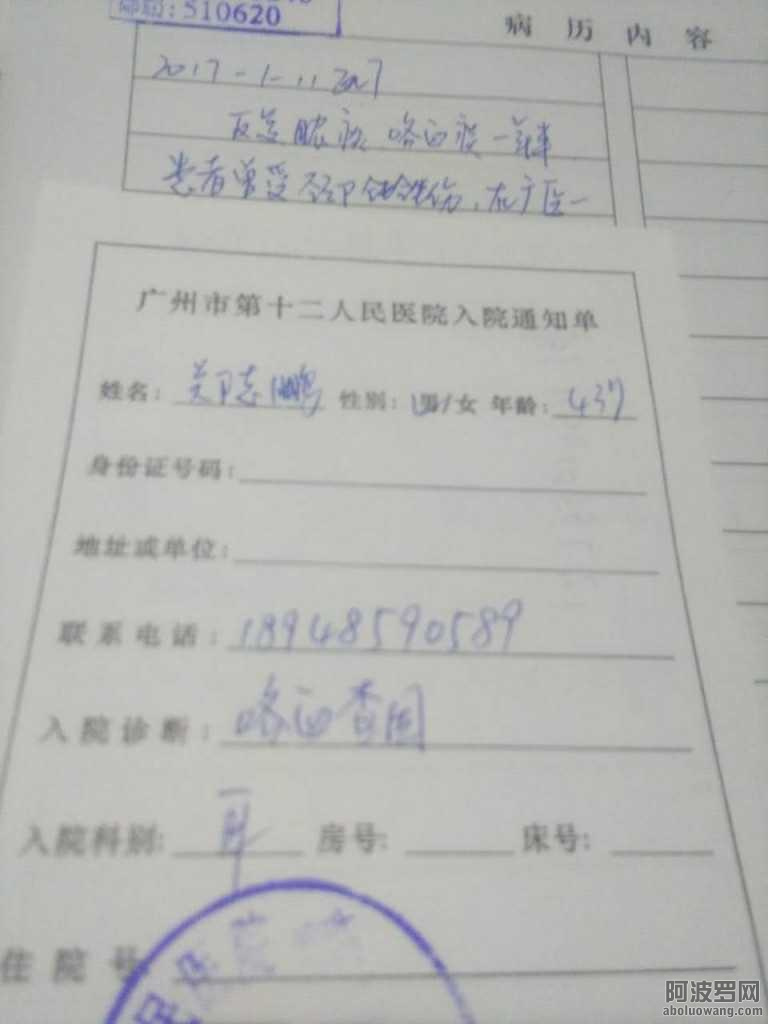 邮编:510620
病历内容
2017-1-11
反复 咯血 一年
患者曾受 伤,在广医一
广州市第十二人民医院入院通知单
姓名: 志鹏 性别: 男/女 年龄: 43岁
身份证号码:
地址或单位:
联系电话: 18948590589
入院诊断: 咯血查因
入院科别: 房号: 床号:
住院号
民医院
阿波罗网
aboluowang.com